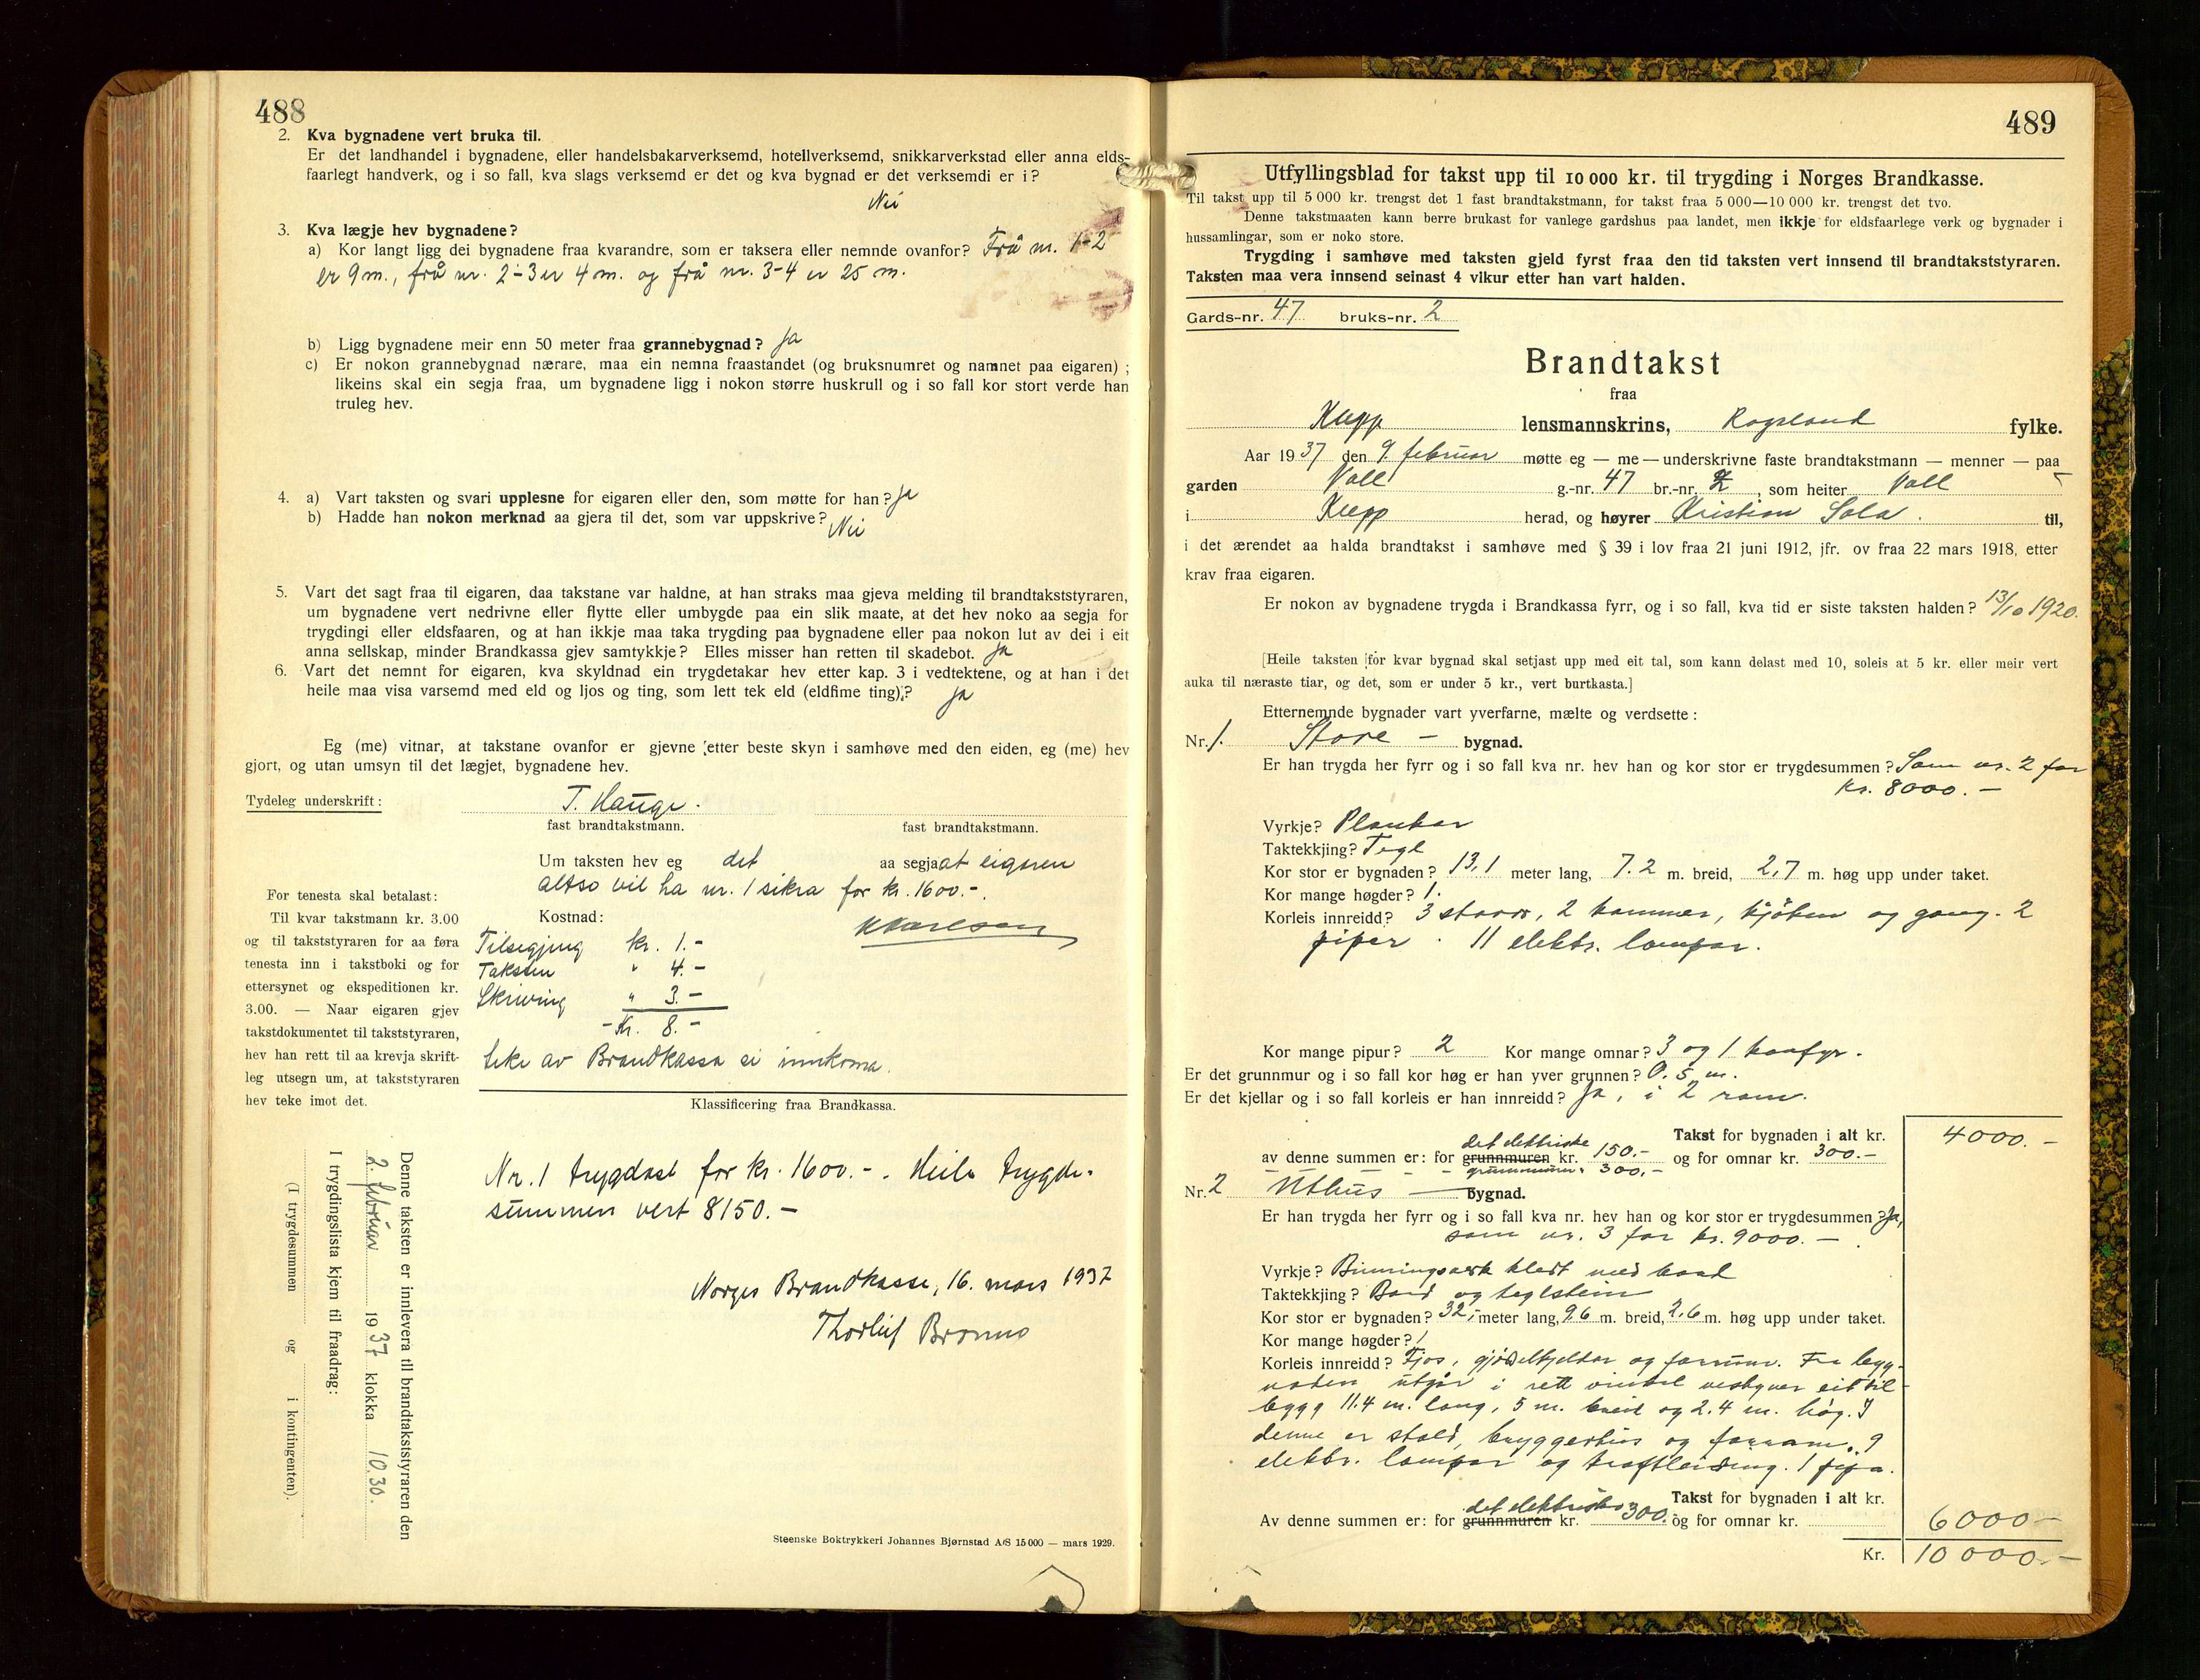 488
2. Kva bygnadene vert bruka til.
Er det landhandel i bygnadene, eller handelsbakarverksemd, hotellverksemd, snikkarverkstad eller anna elds-
faarlegt handverk, og i so fall, kva slags verksemd er det og kva bygnad er det verksemdi er i?
Nei
3. Kva lægje hev bygnadene?
a) Kor langt ligg dei bygnadene fraa kvarandre, som er taksera eller nemnde ovanfor? Frå nr. 1-2
er 9 m., frå nr. 2-3 er 4 m. og frå nr. 3-4 er 25 m.
b) Ligg bygnadene meir enn 50 meter fraa grannebygnad? Ja
c) Er nokon grannebygnad nærare, maa ein nemna fraastandet (og bruksnumret og namnet paa eigaren) ;
likeins skal ein segja fraa, um bygnadene ligg i nokon større huskrull og i so fall kor stort verde han
truleg hev.
4. a) Vart taksten og svari upplesne for eigaren eller den, som møtte for han? Ja
b) Hadde han nokon merknad aa gjera til det, som var uppskrive? Nei
5. Vart det sagt fraa til eigaren, daa takstane var haldne, at han straks maa gjeva melding til brandtakststyraren,
um bygnadene vert nedrivne eller flytte eller umbygde paa ein slik maate, at det hev noko aa segja for
trygdingi eller eldsfaaren, og at han ikkje maa taka trygding paa bygnadene eller paa nokon lut av dei i eit
anna sellskap, minder Brandkassa gjev samtykkje? Elles misser han retten til skadebot. Ja
6. Vart det nemnt for eigaren, kva skyldnad ein trygdetakar hev etter kap. 3 i vedtektene, og at han i det
heile maa visa varsemd med eld og ljos og ting, som lett tek eld (eldfime ting)? Ja
Eg (me) vitnar, at takstane ovanfor er gjevne etter beste skyn i samhøve med den eiden, eg (me) hev
gjort, og utan umsyn til det lægjet, bygnadene hev.
Tydeleg underskrift: T. Hauge.
fast brandtakstmann. fast brandtakstmann.
Um taksten hev eg det aa segja at eigaren
altso vil ha nr. 1 sikra for kr. 1600.-.
Kostnad:
Tilsegjing kr. 1.-
Taksten " 4.-
Skriving " 3.-
- Kr. 8.-
Ikke av Brandkassa ei innkoma.
For tenesta skal betalast:
Til kvar takstmann kr. 3.00
og til takststyraren for aa føra
tenesta inn i takstboki og for
ettersynet og ekspeditionen kr.
3.00. — Naar eigaren gjev
takstdokumentet til takststyraren,
hev han rett til aa krevja skrift-
leg utsegn um, at takststyraren
hev teke imot det.
Klassificering fraa Brandkassa.
Nr. 1 trygdast for kr. 1600.-. Heile trygde-
summen vert 8150.-
Norges Brandkasse, 16. mars 1937
Denne taksten er innlevera til brandtakststyraren den
2. februar 1937 klokka 10.30.
I trygdingslista kjem til fraadrag:
(I trygdesummen og i kontingenten).
Steenske Boktrykkeri Johannes Bjørnstad A/S 15 000 — mars 1929.
489
Utfyllingsblad for takst upp til 10 000 kr. til trygding i Norges Brandkasse.
Til takst upp til 5 000 kr. trengst det 1 fast brandtakstmann, for takst fraa 5 000—10 000 kr. trengst det tvo.
Denne takstmaaten kann berre brukast for vanlege gardshus paa landet, men ikkje for eldsfaarlege verk og bygnader i
hussamlingar, som er noko store.
Trygding i samhøve med taksten gjeld fyrst fraa den tid taksten vert innsend til brandtakststyraren.
Taksten maa vera innsend seinast 4 vikur etter han vart halden.
Gards-nr. 47 bruks-nr. 2
Brandtakst
fraa
Klepp lensmannskrins, Rogaland fylke.
Aar 1937 den 9. februar møtte eg — me — underskrivne faste brandtakstmann — menner — paa
garden Voll g.-nr. 47 br.-nr. 2, som heiter Voll
i Klepp herad, og høyrer Kristian Sola. til,
i det ærendet aa halda brandtakst i samhøve med § 39 i lov fraa 21 juni 1912, jfr. ov fraa 22 mars 1918, etter
krav fraa eigaren.
Er nokon av bygnadene trygda i Brandkassa fyrr, og i so fall, kva tid er siste taksten halden? 13/10 1920.
[Heile taksten for kvar bygnad skal setjast upp med eit tal, som kann delast med 10, soleis at 5 kr. eller meir vert
auka til næraste tiar, og det, som er under 5 kr., vert burtkasta.]
Etternemnde bygnader vart yverfarne, mælte og verdsette:
Nr. 1. Store - bygnad.
Er han trygda her fyrr og i so fall kva nr. hev han og kor stor er trygdesummen? Som nr. 2 for
kr. 8000.-
Vyrkje? Plankar
Taktekkjing? Tegl
Kor stor er bygnaden? 13,1 meter lang, 7.2 m. breid, 2,7 m. høg upp under taket.
Kor mange høgder? 1.
Korleis innreidd? 3 stover, 2 kammer, kjøken og gang. 2
piper. 11 elektr. lampar.
Kor mange pipur? 2 Kor mange omnar? 3 og 1 komfyr.
Er det grunnmur og i so fall kor høg er han yver grunnen? 0.5 m.
Er det kjellar og i so fall korleis er han innreidd? Ja, i 2 rom.
Takst for bygnaden i alt kr. 4000.-
av denne summen er: for grunnmuren det elektriske kr. 150.- og for omnar kr. 300.-
- - - - grunnmuren " 300,-
Nr. 2 Uthus - bygnad.
Er han trygda her fyrr og i so fall kva nr. hev han og kor stor er trygdesummen? Ja,
som nr. 3 for kr. 9000.-
Vyrkje? Binningsverk kledt med bord
Taktekkjing? Bord og teglstein
Kor stor er bygnaden? 32,- meter lang, 9.6 m. breid, 2,6 m. høg upp under taket.
Kor mange høgder? 1
Korleis innreidd? Fjos, gjødelkjeldar og forrum. Fra bygg-
naden utgår i rett vinkel vestover eit til-
bygg 11.4 m. lang, 5 m. breid og 2.4 m. høg. I
denne er stald, bryggerhus og forrom. 9
elektr. lampar og kraftleidning. 1 pipa.
Takst for bygnaden i alt kr.
Av denne summen er: for grunnmuren det elektriske kr. 300. og for omnar kr. 6000-
Kr. 10 000.-